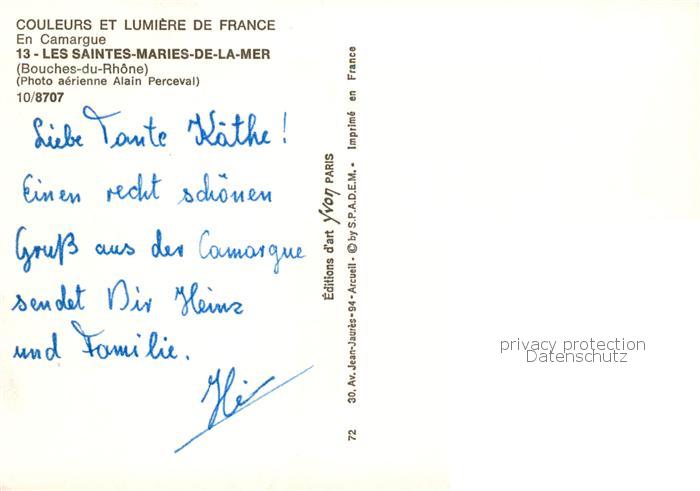 COULEURS ET LUMIÈRE DE FRANCE
En Camargue
13 - LES SAINTES-MARIES-DE-LA-MER
(Bouches-du-Rhône)
(Photo aérienne Alain Perceval)
10/8707
Liebe Tante Käthe!
Einen recht schönen
Gruß aus der Camargue
sendet Dir Heinz
und Familie.
Éditions d'art Yvon PARIS
30, Av. Jean-Jaurès - 94 - Arcueil - © by S.P.A.D.E.M. • Imprimé en France
72
privacy protection
Datenschutz